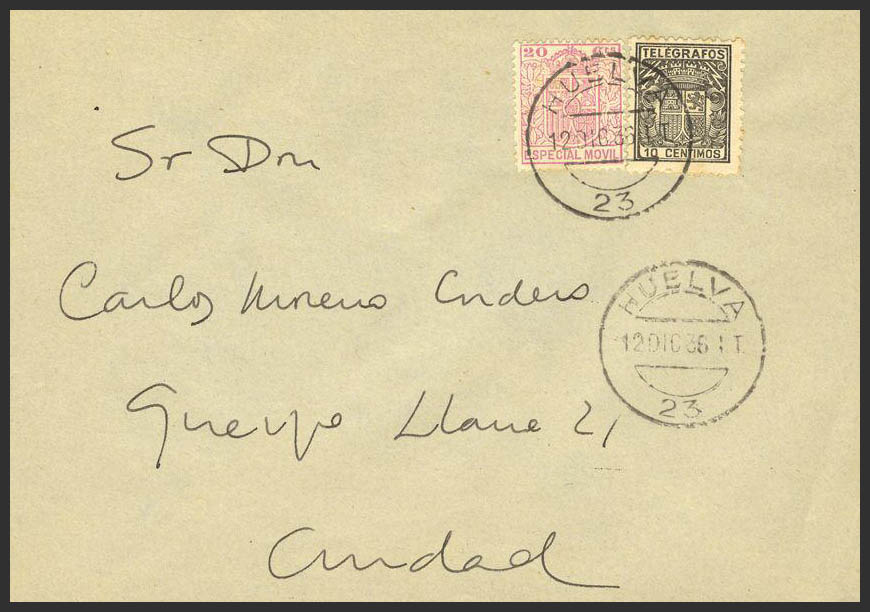 20 Cts
ESPECIAL MOVIL
TELÉGRAFOS
10 CENTIMOS
HUELVA
12 DIC 36 1 T.
23
Sr Dn
Carlos Moreno Cordero
HUELVA
12 DIC 36 1 T.
23
Queipo Llano 21
Ciudad